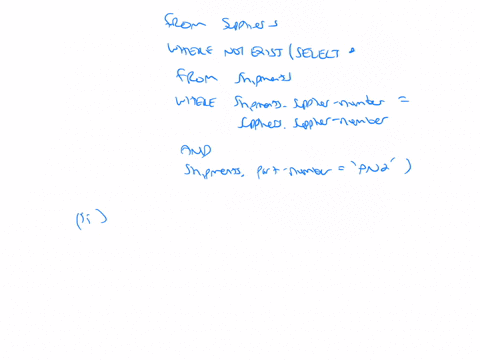 FROM Suppliers
WHERE NOT EXIST (SELECT *
FROM Shipments
WHERE Shipments.supplier-number =
Suppliers.supplier-number
AND
Shipments.part-number = 'PN2' )
(ii)